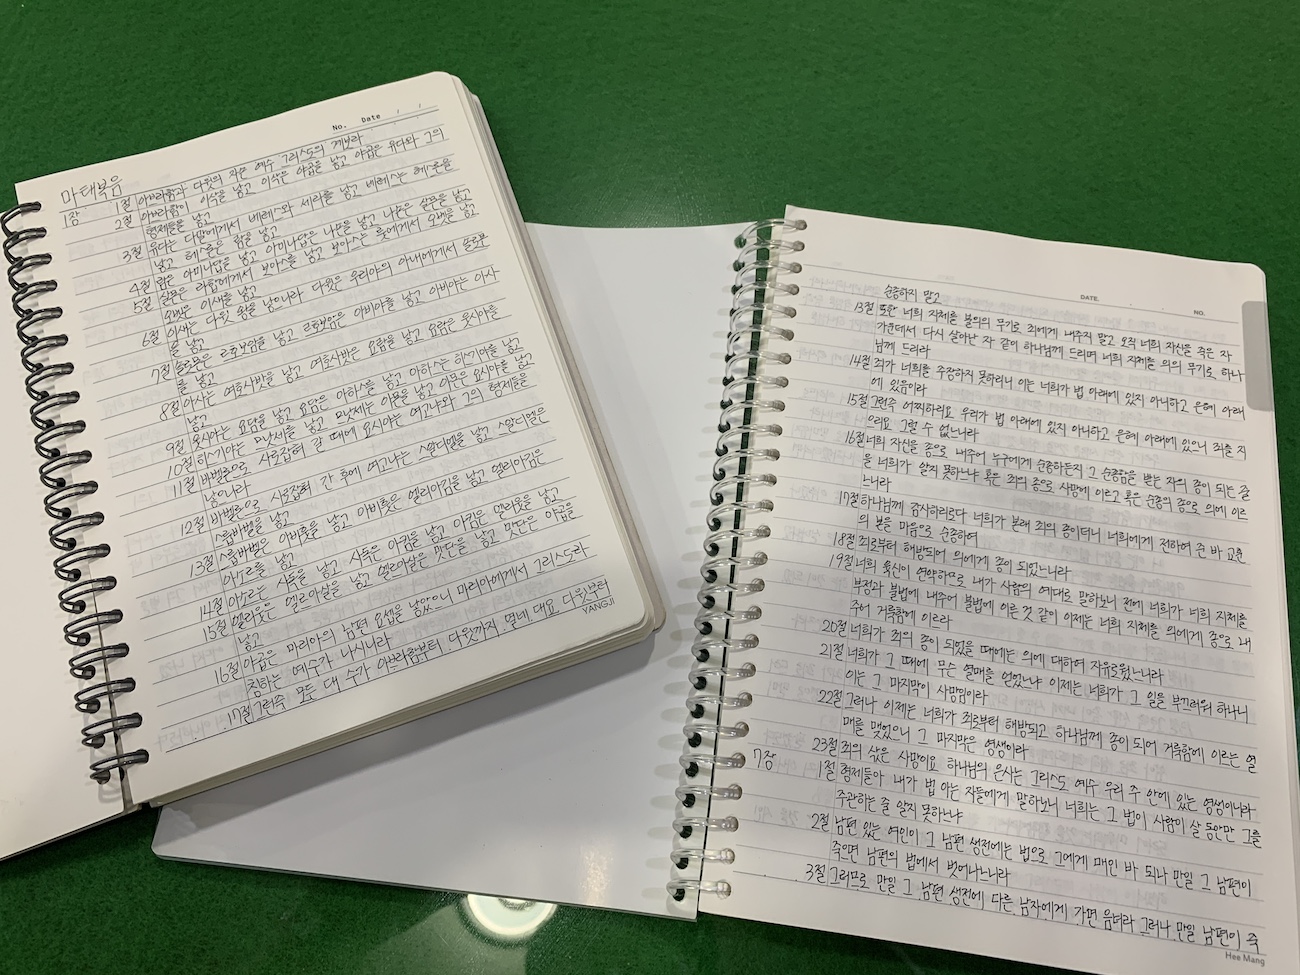 No. Date
마태복음
1장 1절 아브라함과 다윗의 자손 예수 그리스도의 계보라
2절 아브라함이 이삭을 낳고 이삭은 야곱을 낳고 야곱은 유다와 그의
형제들을 낳고
3절 유다는 다말에게서 베레스와 세라를 낳고 베레스는 헤스론을
낳고 헤스론은 람을 낳고
4절 람은 아미나답을 낳고 아미나답은 나손을 낳고 나손은 살몬을 낳고
5절 살몬은 라합에게서 보아스를 낳고 보아스는 룻에게서 오벳을 낳고
오벳은 이새를 낳고
6절 이새는 다윗 왕을 낳으니라 다윗은 우리야의 아내에게서 솔로몬
을 낳고
7절 솔로몬은 르호보암을 낳고 르호보암은 아비야를 낳고 아비야는 아사
를 낳고
8절 아사는 여호사밧을 낳고 여호사밧은 요람을 낳고 요람은 웃시야를
낳고
9절 웃시야는 요담을 낳고 요담은 아하스를 낳고 아하스는 히스기야를 낳고
10절 히스기야는 므낫세를 낳고 므낫세는 아몬을 낳고 아몬은 요시야를 낳고
11절 바벨론으로 사로잡혀 갈 때에 요시야는 여고냐와 그의 형제들을
낳으니라
12절 바벨론으로 사로잡혀 간 후에 여고냐는 스알디엘을 낳고 스알디엘은
스룹바벨을 낳고
13절 스룹바벨은 아비훗을 낳고 아비훗은 엘리아김을 낳고 엘리아김은
아소르를 낳고
14절 아소르는 사독을 낳고 사독은 아킴을 낳고 아킴은 엘리웃을 낳고
15절 엘리웃은 엘르아살을 낳고 엘르아살은 맛단을 낳고 맛단은 야곱을
낳고
16절 야곱은 마리아의 남편 요셉을 낳았으니 마리아에게서 그리스도라
칭하는 예수가 나시니라
17절 그런즉 모든 대 수가 아브라함부터 다윗까지 열네 대요 다윗부터
YANGJI
DATE. NO.
순종하지 말고
13절 또한 너희 지체를 불의의 무기로 죄에게 내주지 말고 오직 너희 자신을 죽은 자
가운데서 다시 살아난 자 같이 하나님께 드리며 너희 지체를 의의 무기로 하나
님께 드리라
14절 죄가 너희를 주장하지 못하리니 이는 너희가 법 아래에 있지 아니하고 은혜 아래
에 있음이라
15절 그런즉 어찌하리요 우리가 법 아래에 있지 아니하고 은혜 아래에 있으니 죄를 지
으리요 그럴 수 없느니라
16절 너희 자신을 종으로 내주어 누구에게 순종하든지 그 순종함을 받는 자의 종이 되는 줄
을 너희가 알지 못하느냐 혹은 죄의 종으로 사망에 이르고 혹은 순종의 종으로 의에 이르
느니라
17절 하나님께 감사하리로다 너희가 본래 죄의 종이더니 너희에게 전하여 준 바 교훈
의 본을 마음으로 순종하여
18절 죄로부터 해방되어 의에게 종이 되었느니라
19절 너희 육신이 연약하므로 내가 사람의 예대로 말하노니 전에 너희가 너희 지체를
부정과 불법에 내주어 불법에 이른 것 같이 이제는 너희 지체를 의에게 종으로 내
주어 거룩함에 이르라
20절 너희가 죄의 종이 되었을 때에는 의에 대하여 자유로웠느니라
21절 너희가 그 때에 무슨 열매를 얻었느냐 이제는 너희가 그 일을 부끄러워 하나니
이는 그 마지막이 사망임이라
22절 그러나 이제는 너희가 죄로부터 해방되고 하나님께 종이 되어 거룩함에 이르는 열
매를 맺었으니 그 마지막은 영생이라
23절 죄의 삯은 사망이요 하나님의 은사는 그리스도 예수 우리 주 안에 있는 영생이니라
7장 1절 형제들아 내가 법 아는 자들에게 말하노니 너희는 그 법이 사람이 살 동안만 그를
주관하는 줄 알지 못하느냐
2절 남편 있는 여인이 그 남편 생전에는 법으로 그에게 매인 바 되나 만일 그 남편이
죽으면 남편의 법에서 벗어나느니라
3절 그러므로 만일 그 남편 생전에 다른 남자에게 가면 음녀라 그러나 만일 남편이 죽
Hee Mang